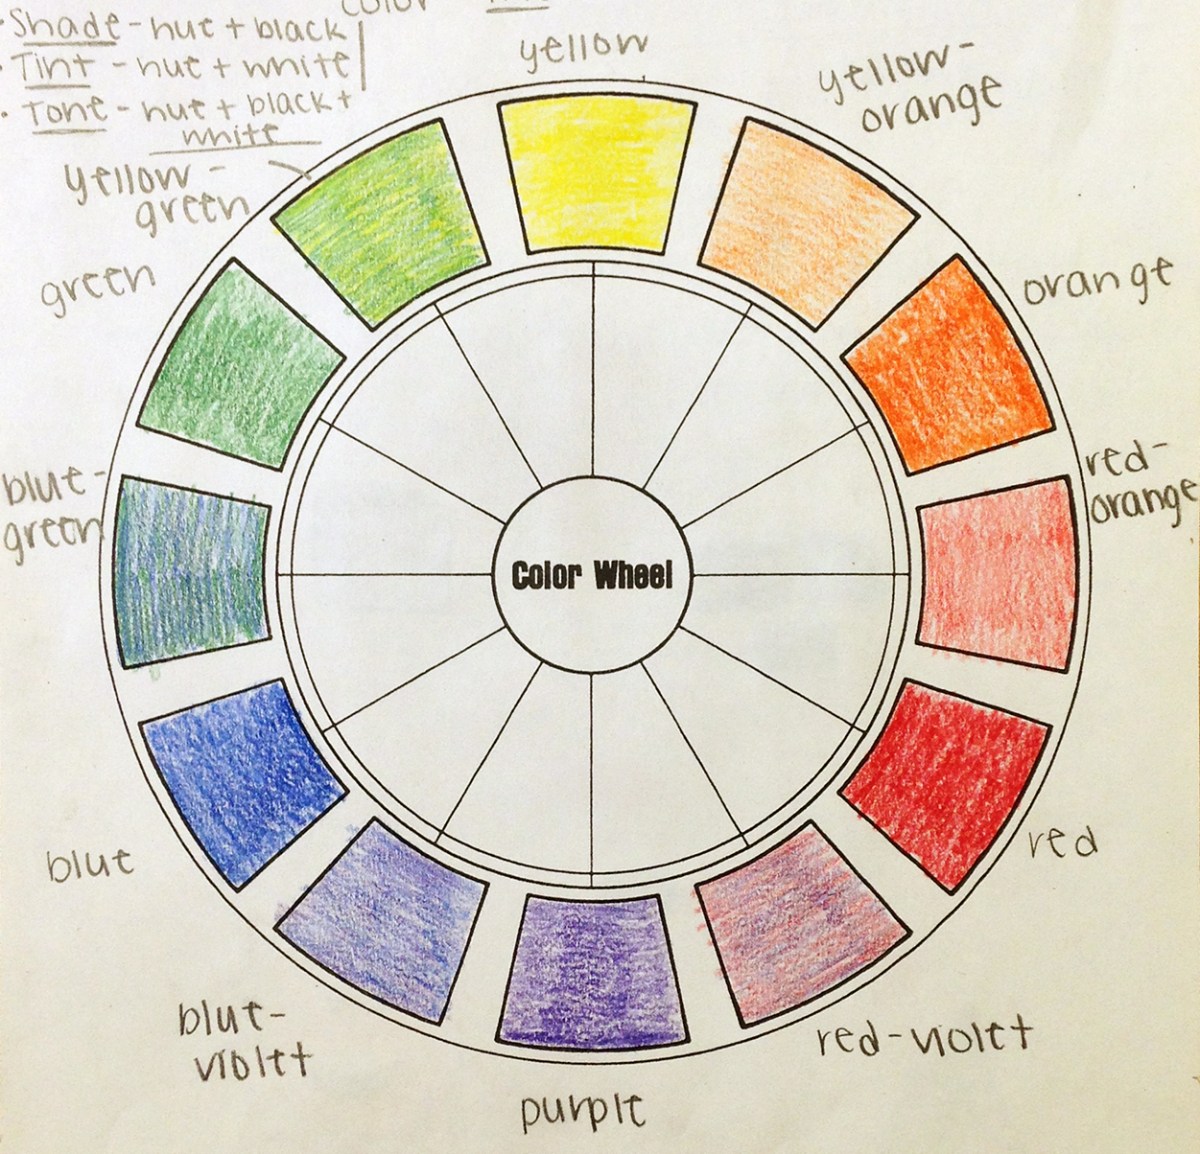 color
• Shade - hue + black
• Tint - hue + white
• Tone - hue + black +
white
yellow
yellow-
orange
orange
red-
orange
red
red-violet
purple
blue-
violet
blue
blue-
green
green
yellow-
green
Color Wheel